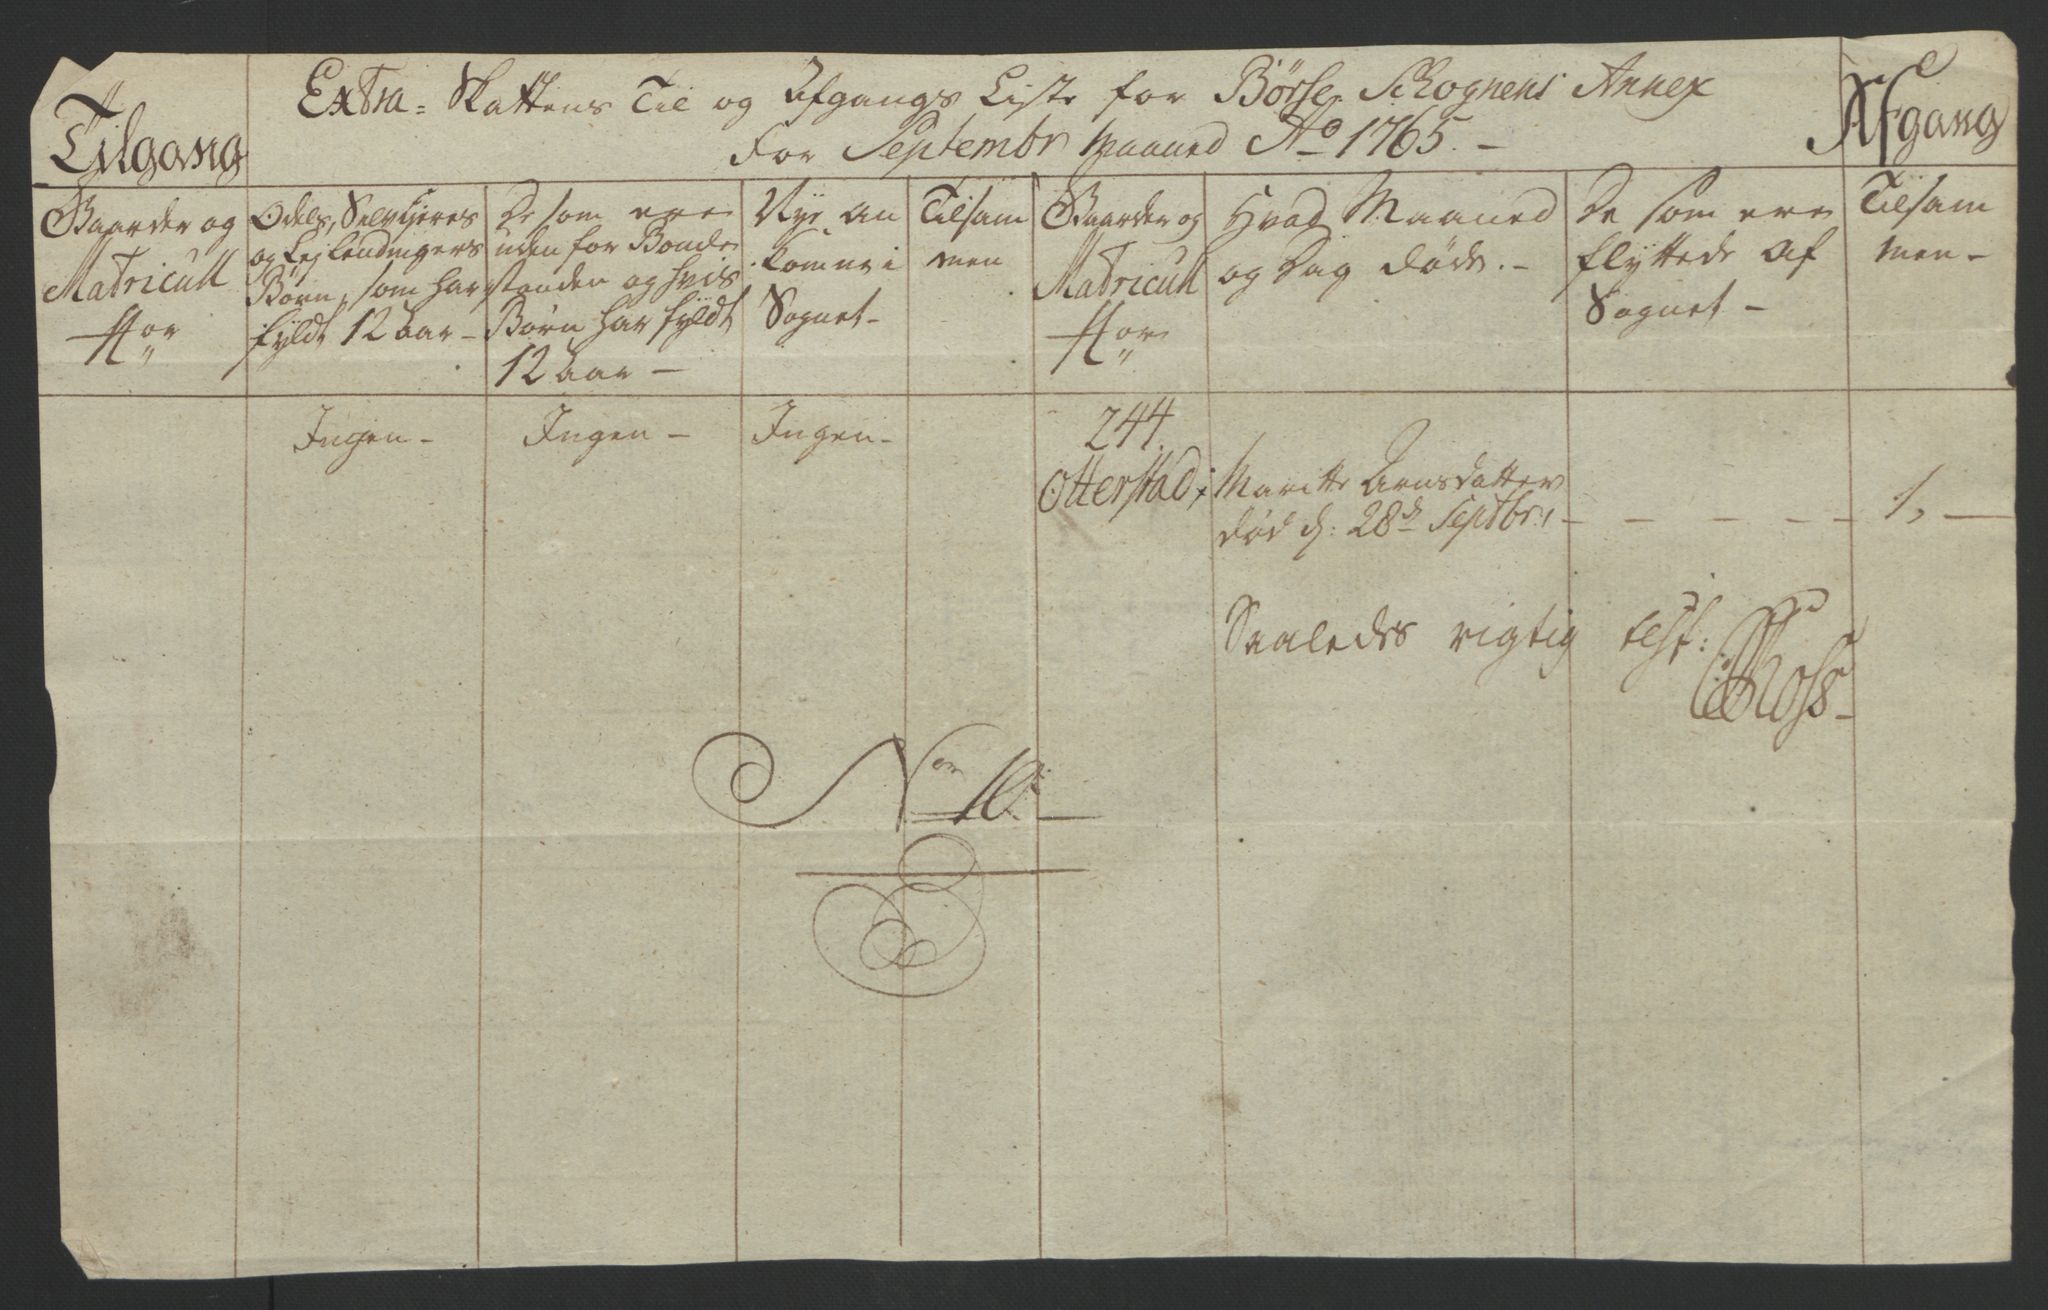 Tilgang
Extra-Skattens Til og Afgangs Liste for Børse Annex
For Septembr Maaned Ao 1765.-
Afgang
Gaarder og
Matricull
Odels, Selvejeres
og Lejlendingers
Børn, som har
fyldt 12 Aar-
De som ere
uden for Bonde
standen og hvis
Børn har fyldt
12 Aar-
Nye an
komne i
Sognet-
Tilsam
men
Gaarder og
Matricull
Hvad Maaned
og Dag døde.-
De som ere
flyttede af
Sognet-
Tilsam
men-
Ingen- Ingen- Ingen-
244.
Otterstad;
Maritte Arnsdatter
død d: 28d Septbr:
1,
Saaledes rigtig test:
Nor 10